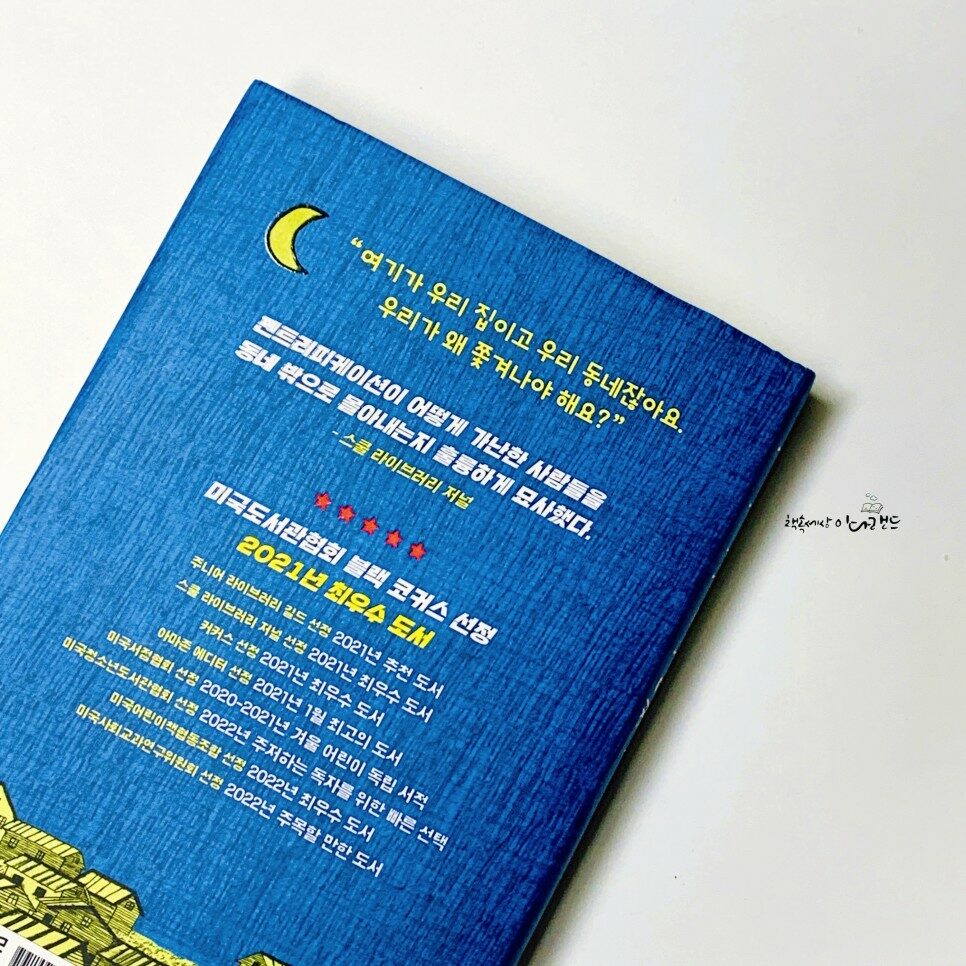 “여기가 우리 집이고 우리 동네잖아요.
우리가 왜 쫓겨나야 해요?”
젠트리피케이션이 어떻게 가난한 사람들을
동네 밖으로 몰아내는지 훌륭하게 묘사했다.
- 스쿨 라이브러리 저널
미국도서관협회 블랙 코커스 선정
2021년 최우수 도서
주니어 라이브러리 길드 선정 2021년 추천 도서
스쿨 라이브러리 저널 선정 2021년 최우수 도서
커커스 선정 2021년 최우수 도서
아마존 에디터 선정 2021년 1월 최고의 도서
미국서점협회 선정 2020-2021년 겨울 어린이 독립 서적
미국청소년도서관협회 선정 2022년 주저하는 독자를 위한 빠른 선택
미국어린이책협동조합 선정 2022년 최우수 도서
미국사회교과연구위원회 선정 2022년 주목할 만한 도서
책속세상 이